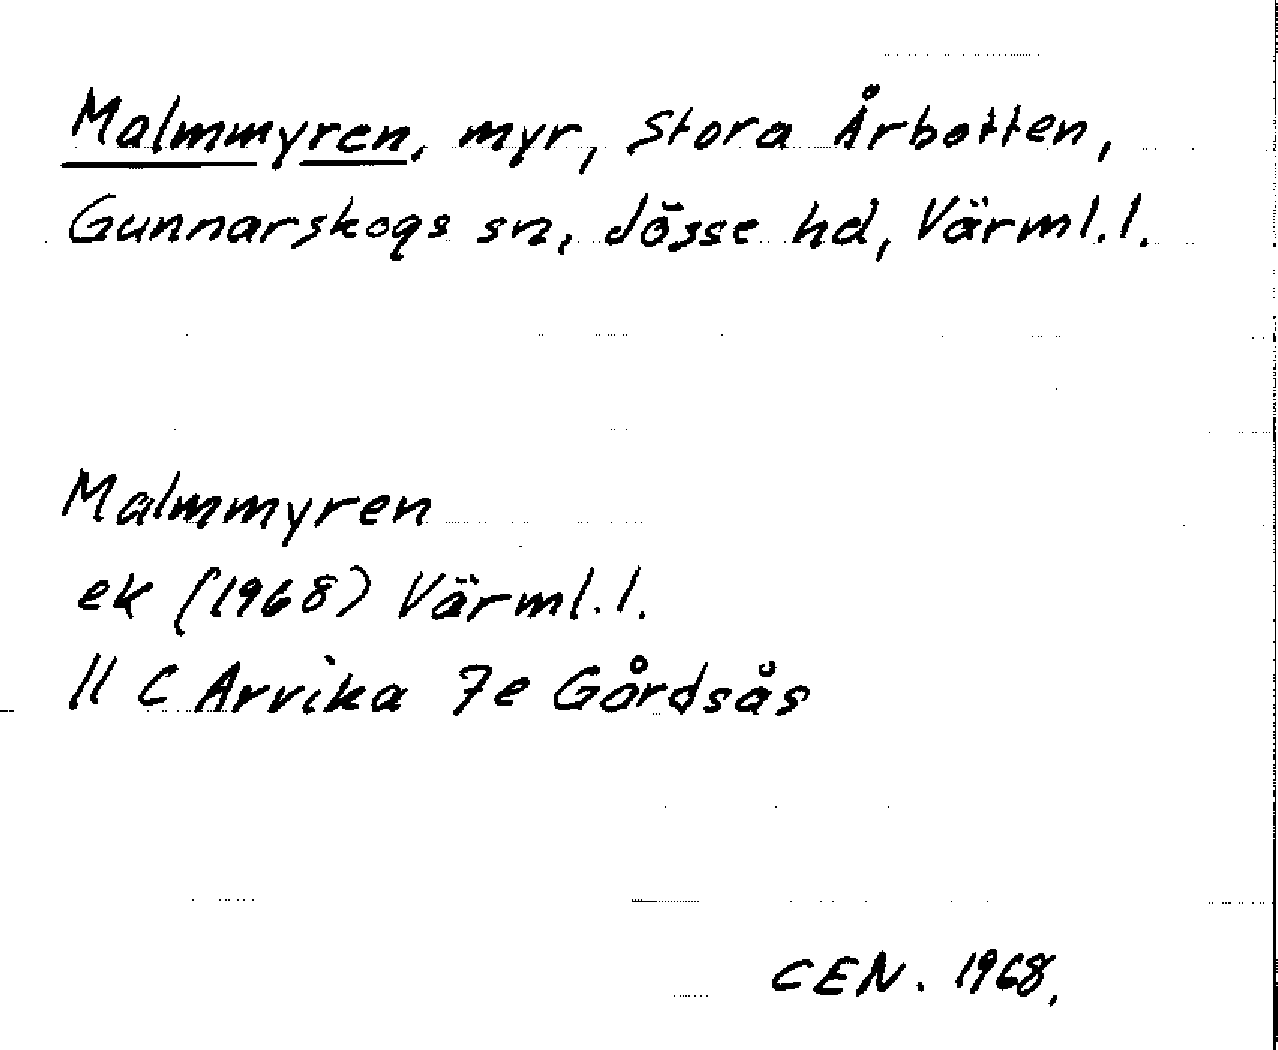 Malmmyren, myr, Stora Årbotten,
Gunnarskogs sn, Jösse hd, Värml.l.
Malmmyren
ek (1968) Värml.l.
11 C Arvika 7e Gårdsås
CEN. 1968.